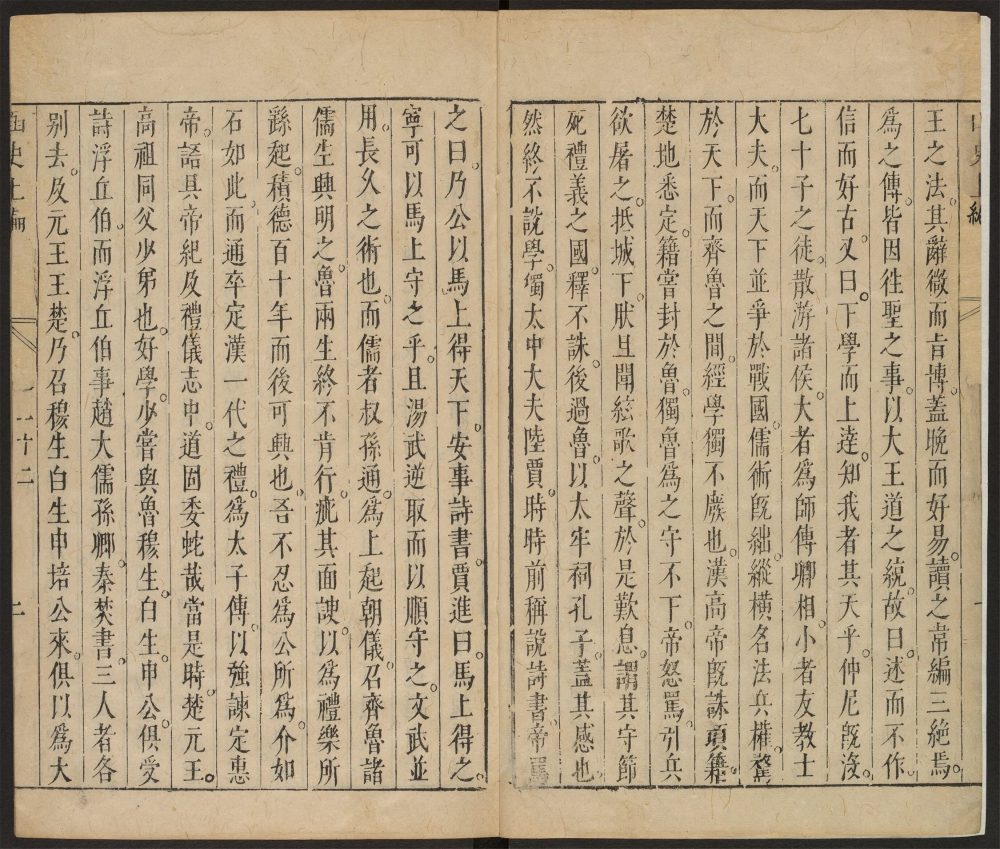 王之法其辭微而㫖博葢晚而好易讀之常編三絶焉
爲之傳皆因徃聖之事以大王道之統故曰述而不作
信而好古又曰下學而上達知我者其天乎仲尼旣没
七十子之徒散游諸侯大者爲師傅卿相小者友教士
大夫而天下並爭於戰國儒術旣絀縱横名法兵權鼇
於天下而齊魯之間經學獨不廢也漢高帝旣誅項籍
楚地悉定籍嘗封於魯獨魯爲之守不下帝怒罵引兵
欲屠之抵城下肰且聞絃歌之聲於是歎息謂其守節
死禮義之國釋不誅後過魯以太牢祠孔子葢其感也
然終不說學獨太中大夫陸賈時時前稱說詩書帝罵
之曰乃公以馬上得天下安事詩書賈進曰馬上得之
寧可以馬上守之乎且湯武逆取而以順守之文武並
用長久之術也而儒者叔孫通爲上起朝儀召齊魯諸
儒生興明之魯兩生終不肯行疵其面諛以爲禮樂所
繇起積德百十年而後可興也吾不忍爲公所爲介如
石如此而通卒定漢一代之禮爲太子傅以強諫定惠
帝語具帝紀及禮儀志中道固委蛇哉當是時楚元王
高祖同父少弟也好學少嘗與魯穆生白生申公俱受
詩浮丘伯而浮丘伯事趙大儒孫卿秦焚書三人者各
别去及元王王楚乃召穆生白生申培公來俱以爲大
函史上編
二十二
二